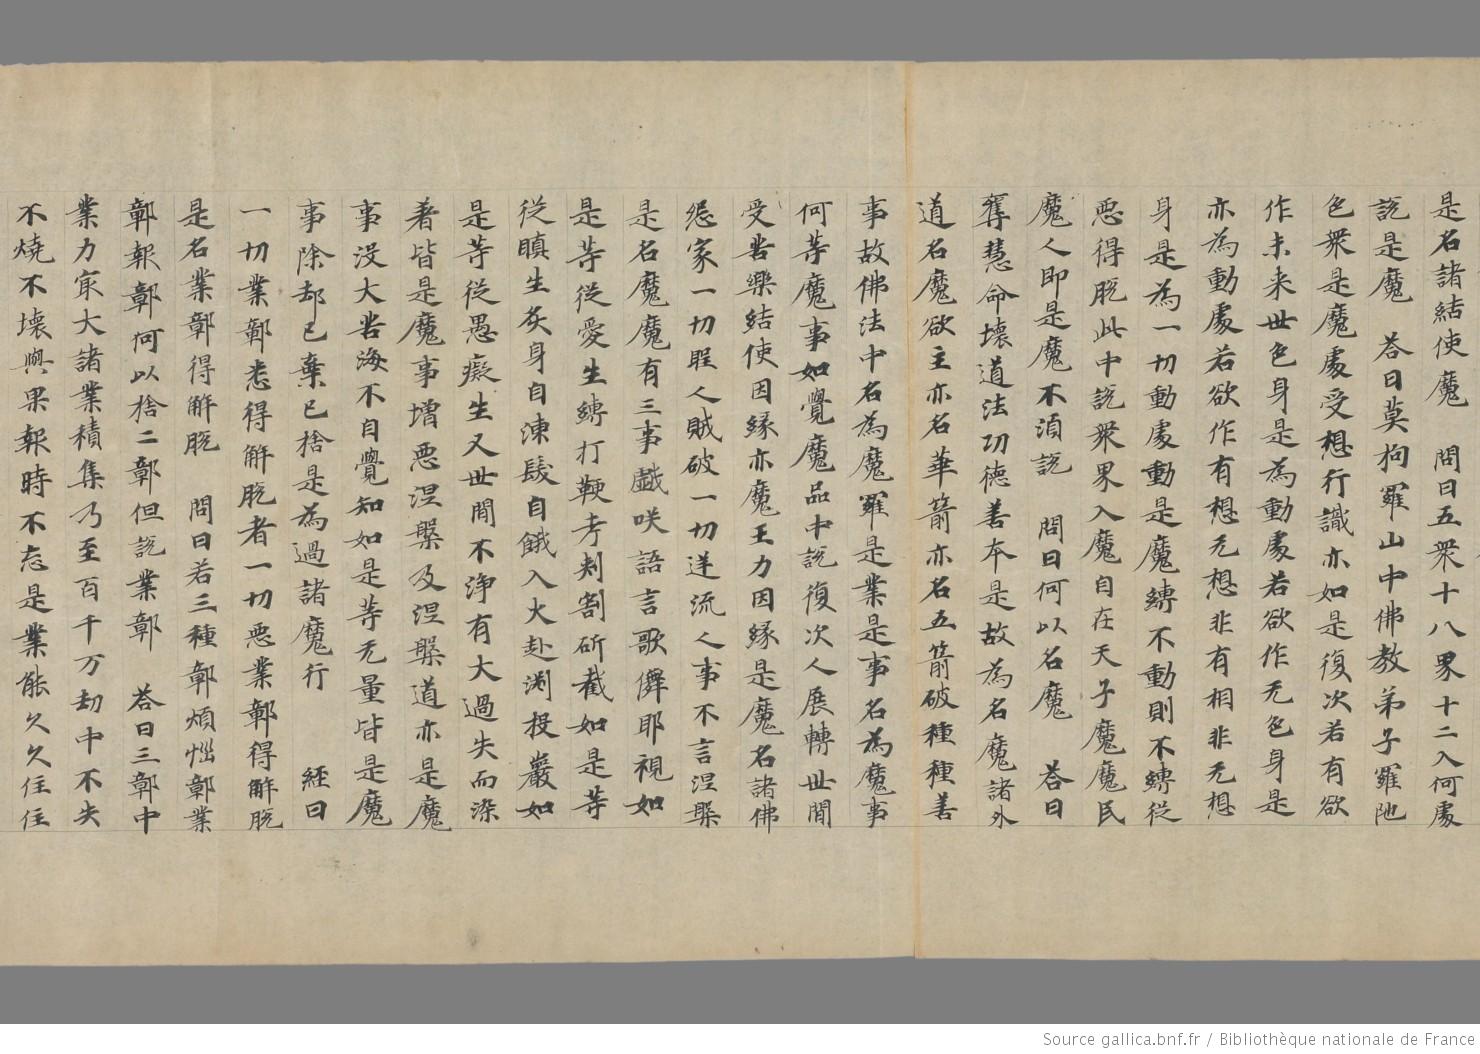 是名諸結使魔　問曰五眾十八界十二入何處
說是魔　荅曰莫拘羅山中佛教弟子羅陁
色眾是魔處受想行識亦如是復次若有欲
作未来世色身是為動處若欲作无色身是
亦為動處若欲作有想无想非有相非无想
身是為一切動處動是魔縛不動則不縛從
惡得脫此中說眾界入魔自在天子魔魔民
魔人即是魔不湏說　問曰何以名魔　荅曰
奪慧命壞道法功德善本是故為名魔諸外
道名魔欲主亦名華箭亦名五箭破種種善
事故佛法中名為魔羅是業是事名為魔事
何等魔事如覺魔品中說復次人展轉世間
受苦樂結使因緣亦魔王力因緣是魔名諸佛
怨家一切聖人賊破一切逆流人事不言涅槃
是名魔魔有三事戲咲語言歌儛耶視如
是等從愛生縛打鞕考刾割斫截如是等
從瞋生炙身自凍髮自餓入火赴渕投巖如
是等從愚癡生又世間不淨有大過失而染
著皆是魔事增惡涅槃及涅槃道亦是魔
事没大苦海不自覺知如是等无量皆是魔
事除却已棄已捨是為過諸魔行　　經曰
一切業鄣悉得解脫者一切惡業鄣得解脫
是名業鄣得解脫　問曰若三種鄣煩惱鄣業
鄣報鄣何以捨二鄣但說業鄣　荅曰三鄣中
業力㝡大諸業積集乃至百千万劫中不失
不燒不壞與果報時不忘是業能久久住住